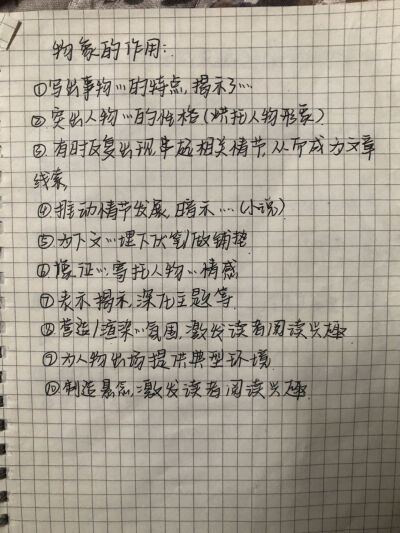 物象的作用:
①写出事物…的特点,揭示了…
②突出人物…的性格(烘托人物形象)
③有时反复出现,串起相关情节,从而成为文章
线索
④推动情节发展,暗示…(小说)
⑤为下文…埋下伏笔/做铺垫
⑥象征…,寄托人物…情感
⑦表示揭示,深化主题等
⑧营造/渲染…氛围,激发读者阅读兴趣
⑨为人物出场提供典型环境
⑩制造悬念,激发读者阅读兴趣